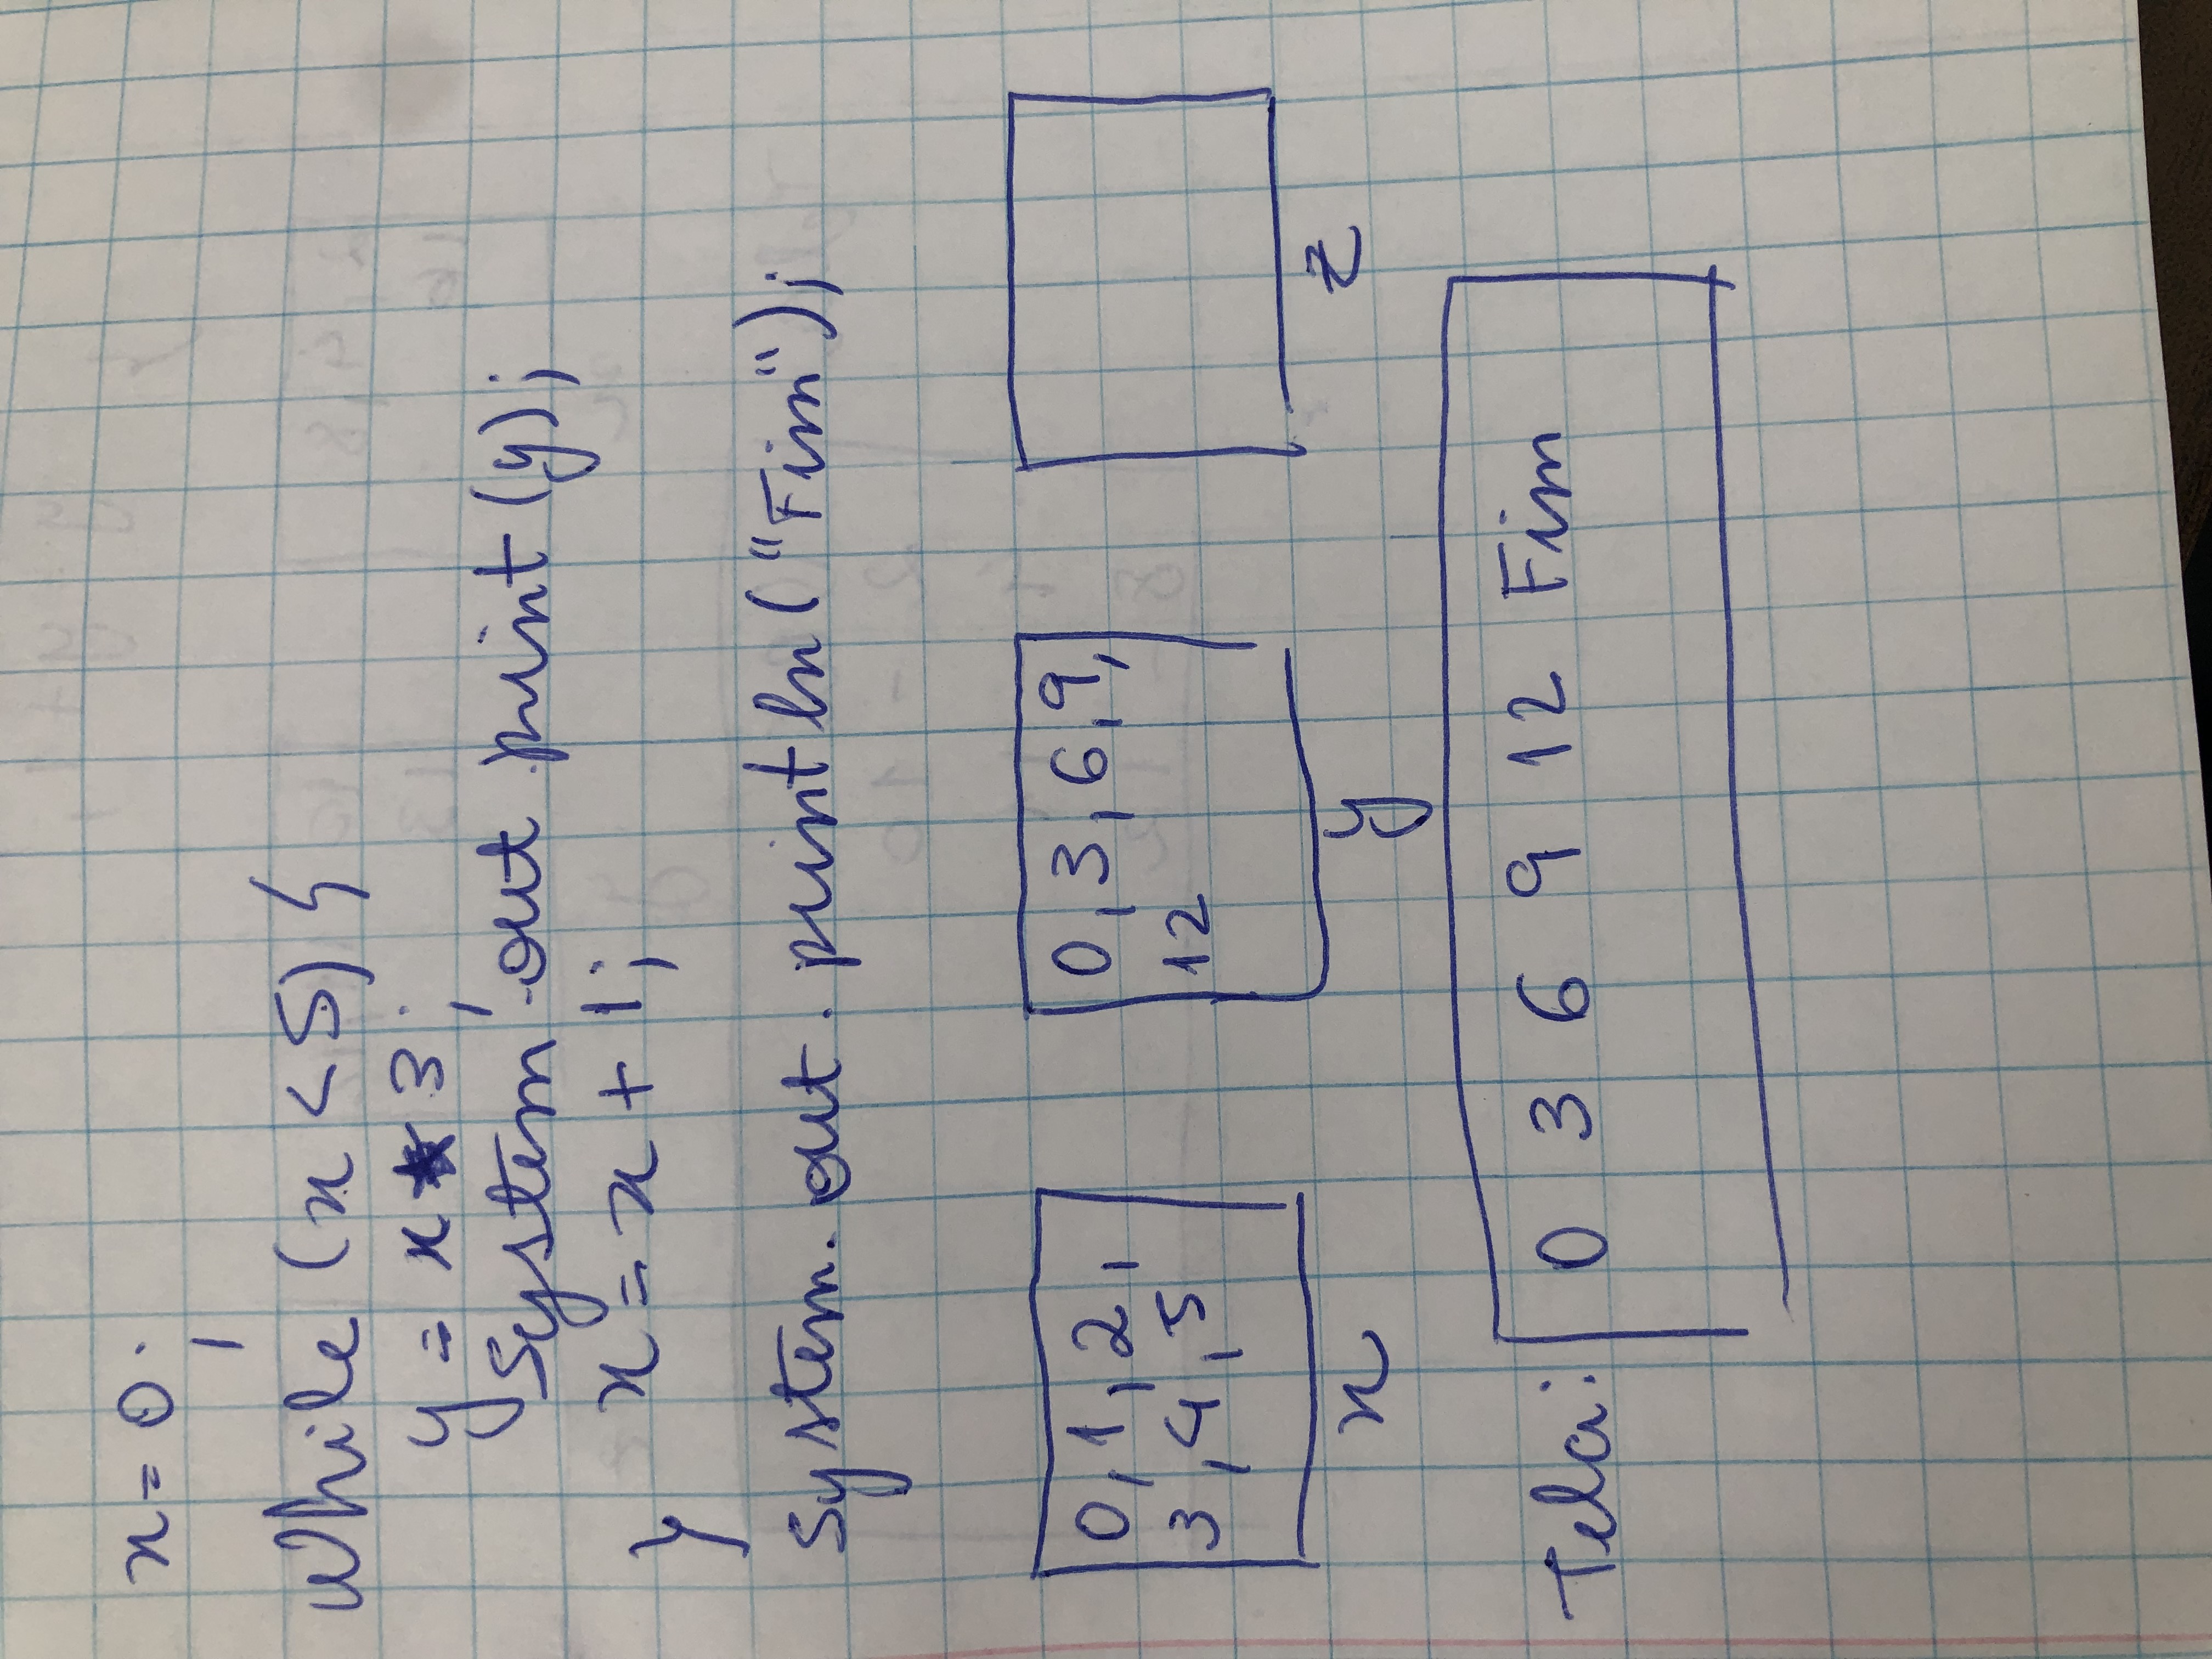 x = 0;
While (x < 5) {
y = x * 3;
System.out.print(y);
x = x + 1;
}
System.out.println("Fim");
0, 1, 2,
3, 4, 5
x
0, 3, 6, 9,
12
y
z
Tela: 0 3 6 9 12 Fim